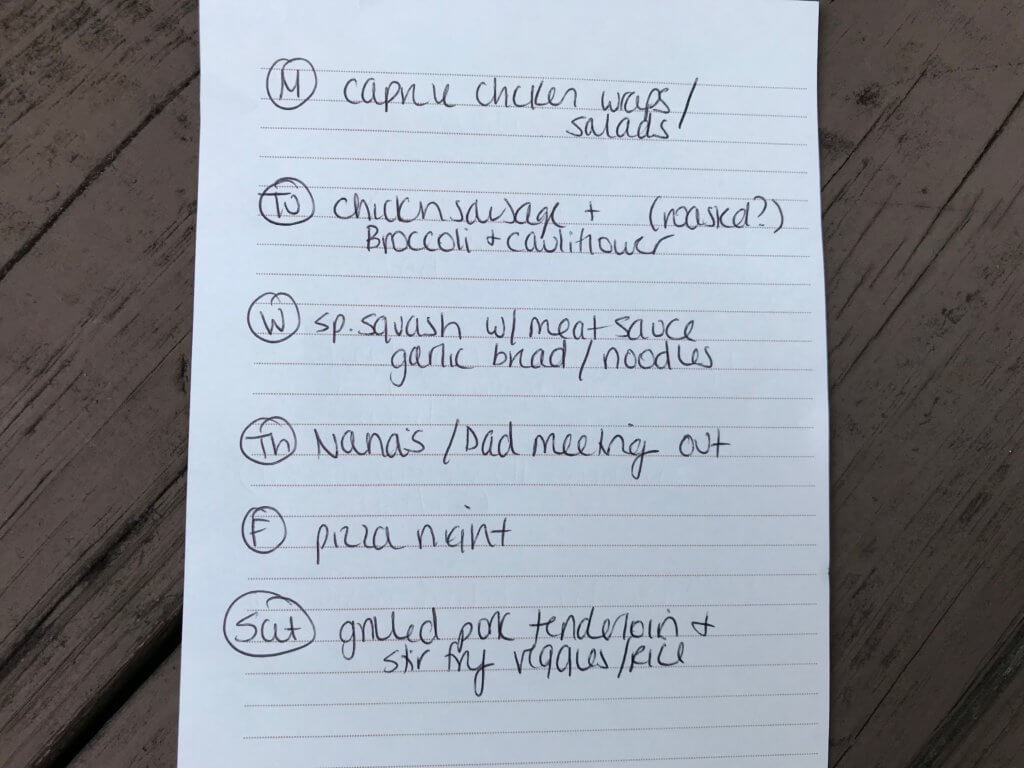 M caprese chicken wraps/
salads
Tu chicken sausage + (roasted?)
Broccoli + cauliflower
W sp. squash w/ meat sauce
garlic bread / noodles
Th Nana's / Dad meeting out
F pizza night
Sat grilled pork tenderloin +
stir fry veggies/rice